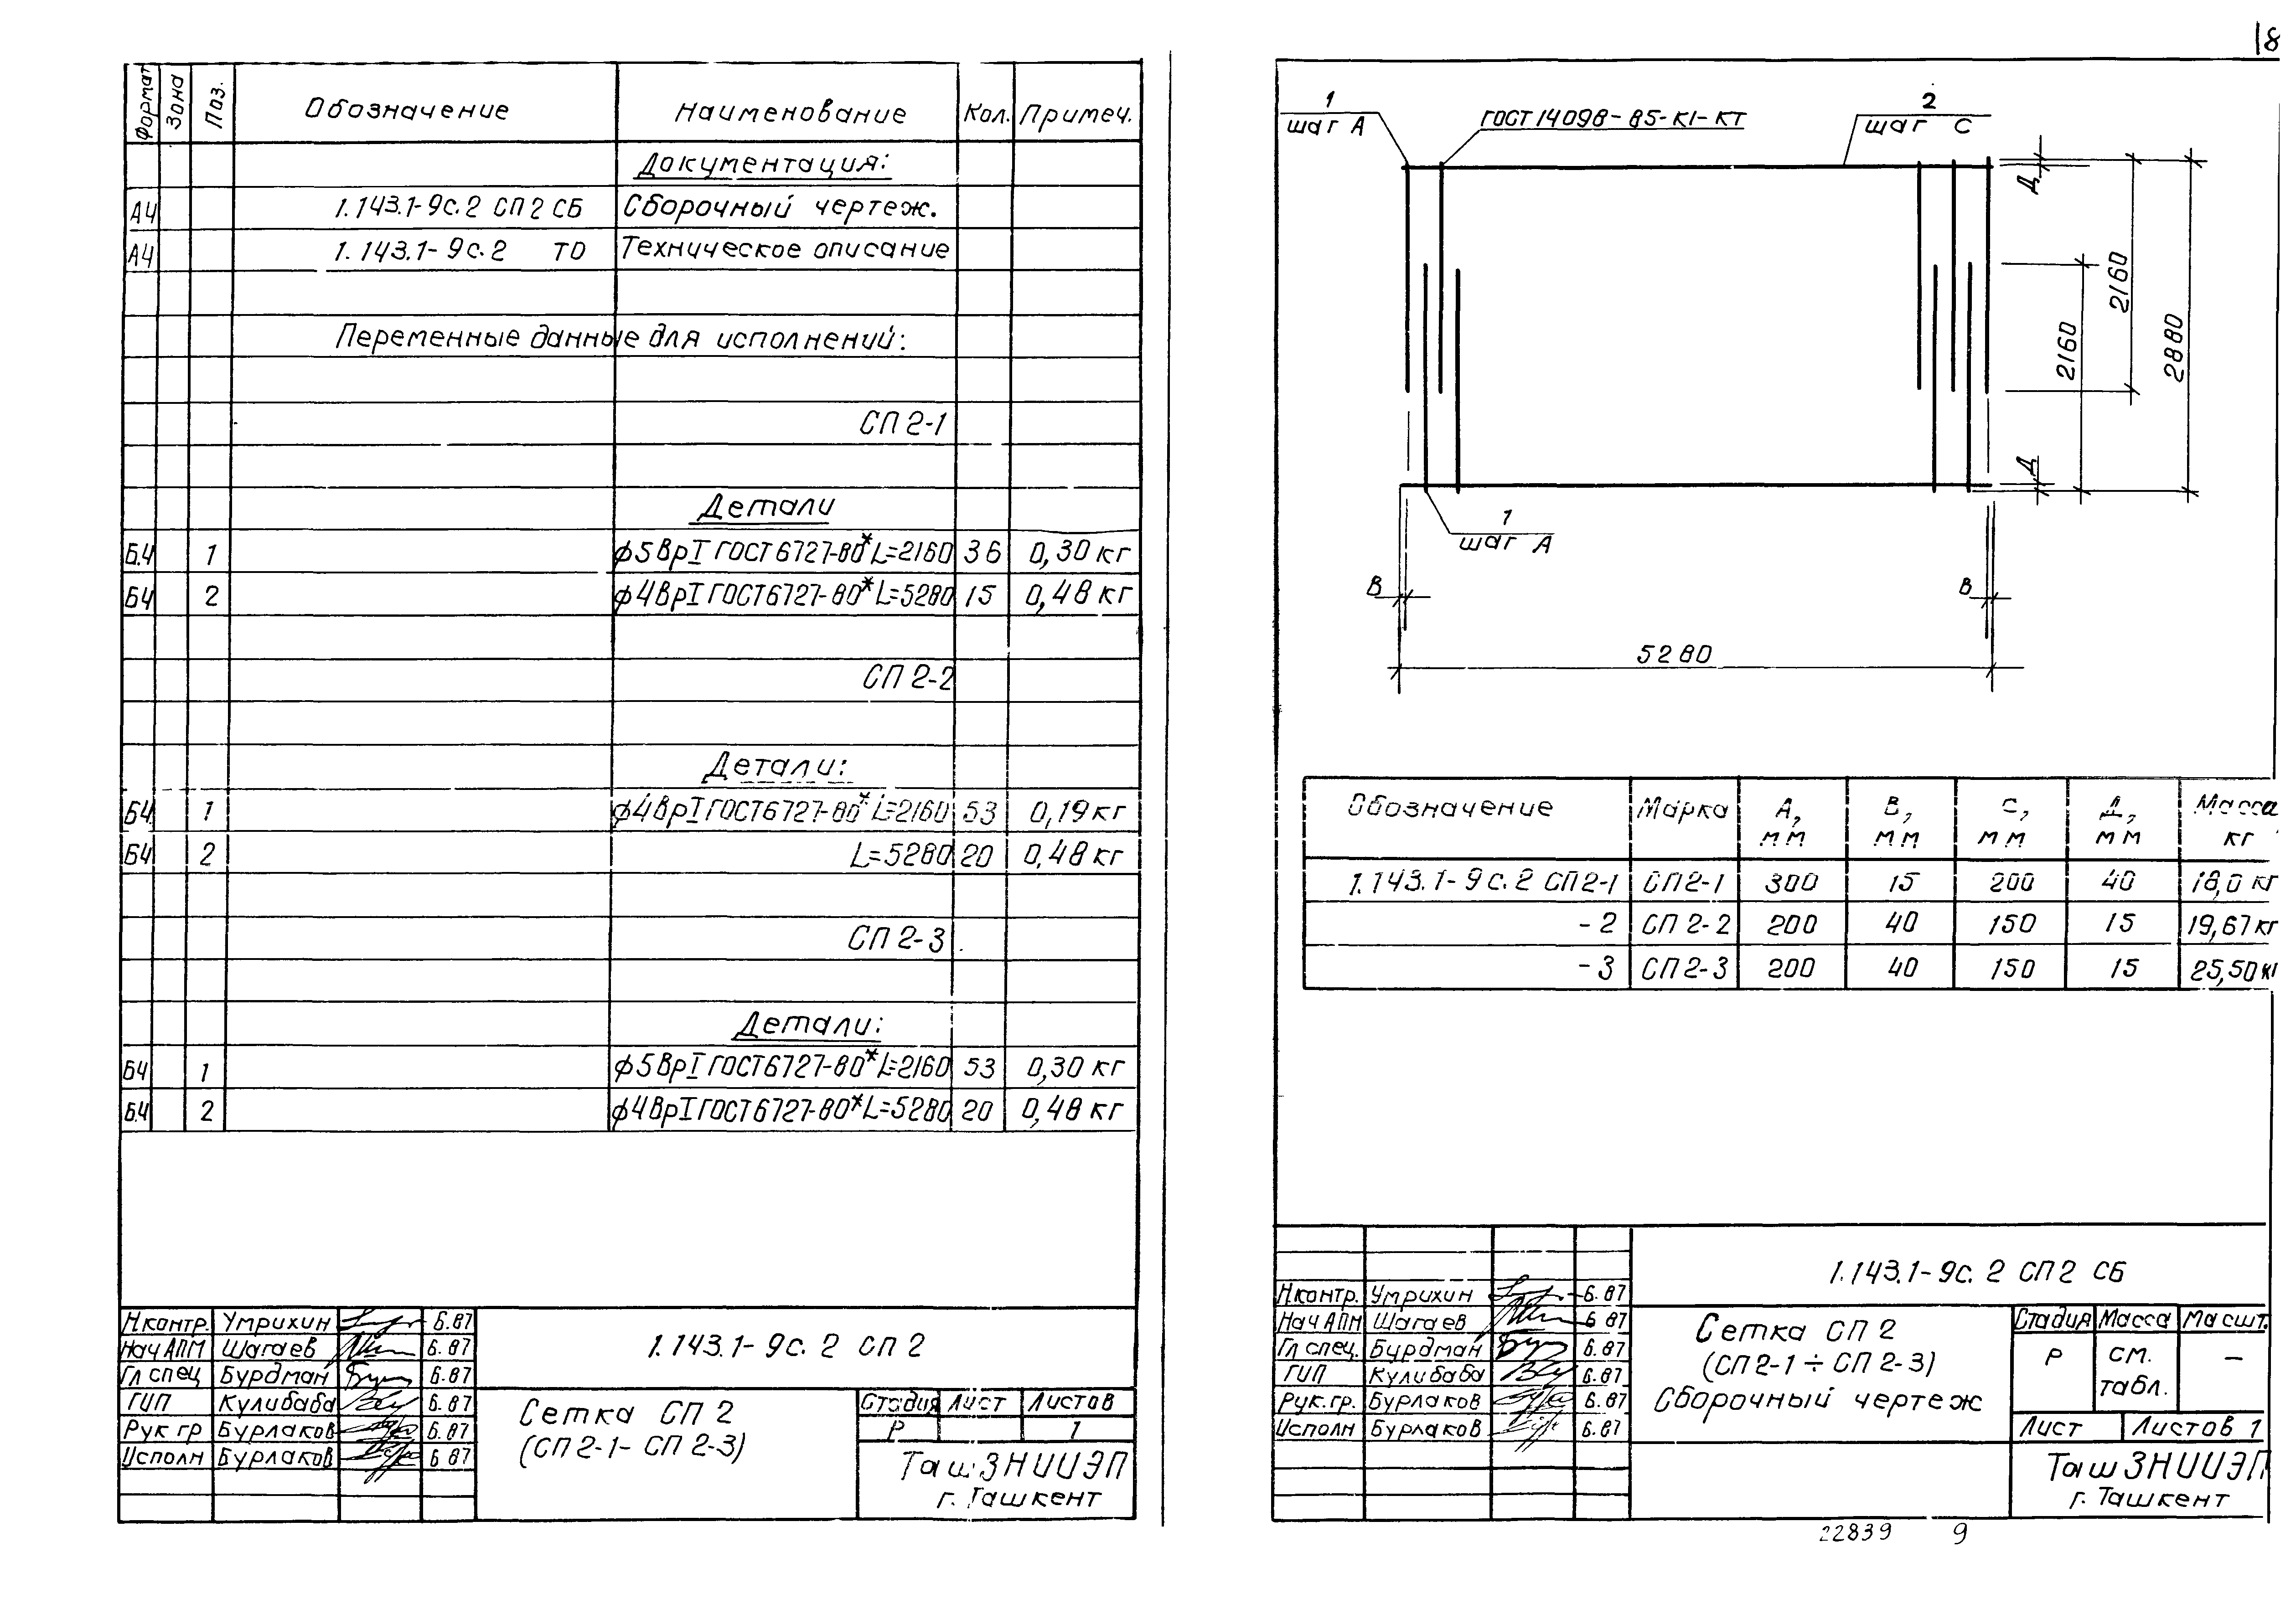 18
Формат Зона Поз. Обозначение Наименование Кол. Примеч.
Документация:
А4 1.143.1-9с.2 СП2 СБ Сборочный чертеж.
А4 1.143.1-9с.2 ТО Техническое описание
Переменные данные для исполнений:
СП 2-1
Детали
Б.4 1 ф5ВрI ГОСТ 6727-80* L=2160 36 0,30 кг
Б4 2 ф4ВрI ГОСТ 6727-80* L=5280 15 0,48 кг
СП 2-2
Детали:
Б4 1 ф4ВрI ГОСТ 6727-80* L=2160 53 0,19 кг
Б4 2 L=5280 20 0,48 кг
СП 2-3
Детали:
Б4 1 ф5ВрI ГОСТ 6727-80* L=2160 53 0,30 кг
Б.4 2 ф4ВрI ГОСТ 6727-80* L=5280 20 0,48 кг
Н.контр. Умрихин 6.87
Нач АПМ Шагаев 6.87
Гл спец Бурдман 6.87
ГИП Кулибаба 6.87
Рук гр Бурлаков 6.87
Исполн Бурлаков 6 87
1.143.1-9с.2 СП 2
Сетка СП 2
(СП 2-1- СП 2-3)
Стадия Лист Листов
Р 1
ТашЗНИИЭП
г. Ташкент
1
шаг А
ГОСТ 14098-85-К1-КТ
2
шаг С
Д
2160
2160
2880
Д
1
шаг А
В
В
5280
Обозначение Марка А, мм В, мм С, мм Д, мм Масса кг
1.143.1-9с.2 СП2-1 СП2-1 300 15 200 40 18,0 кг
-2 СП 2-2 200 40 150 15 19,67 кг
-3 СП 2-3 200 40 150 15 25,50 кг
Н.контр. Умрихин 6.87
Нач АПМ Шагаев 6 87
Гл спец. Бурдман 6.87
ГИП Кулибаба 6.87
Рук.гр. Бурлаков 6.87
Исполн Бурлаков 6.87
1.143.1-9с.2 СП2 СБ
Сетка СП 2
(СП 2-1 ÷ СП 2-3)
Сборочный чертеж
Стадия Масса Масшт.
Р см. табл. –
Лист Листов 1
ТашЗНИИЭП
г. Ташкент
22839 9